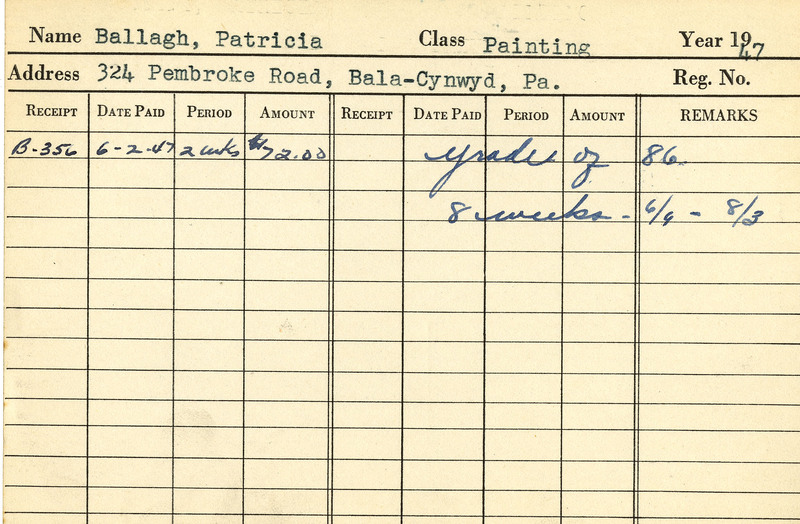 Name Ballagh, Patricia Class Painting Year 1947
Address 324 Pembroke Road, Bala-Cynwyd, Pa. Reg. No.
RECEIPT DATE PAID PERIOD AMOUNT RECEIPT DATE PAID PERIOD AMOUNT REMARKS
B-356 6-2-47 2 wks $72.00 grade of 86
8 weeks - 6/9 - 8/3